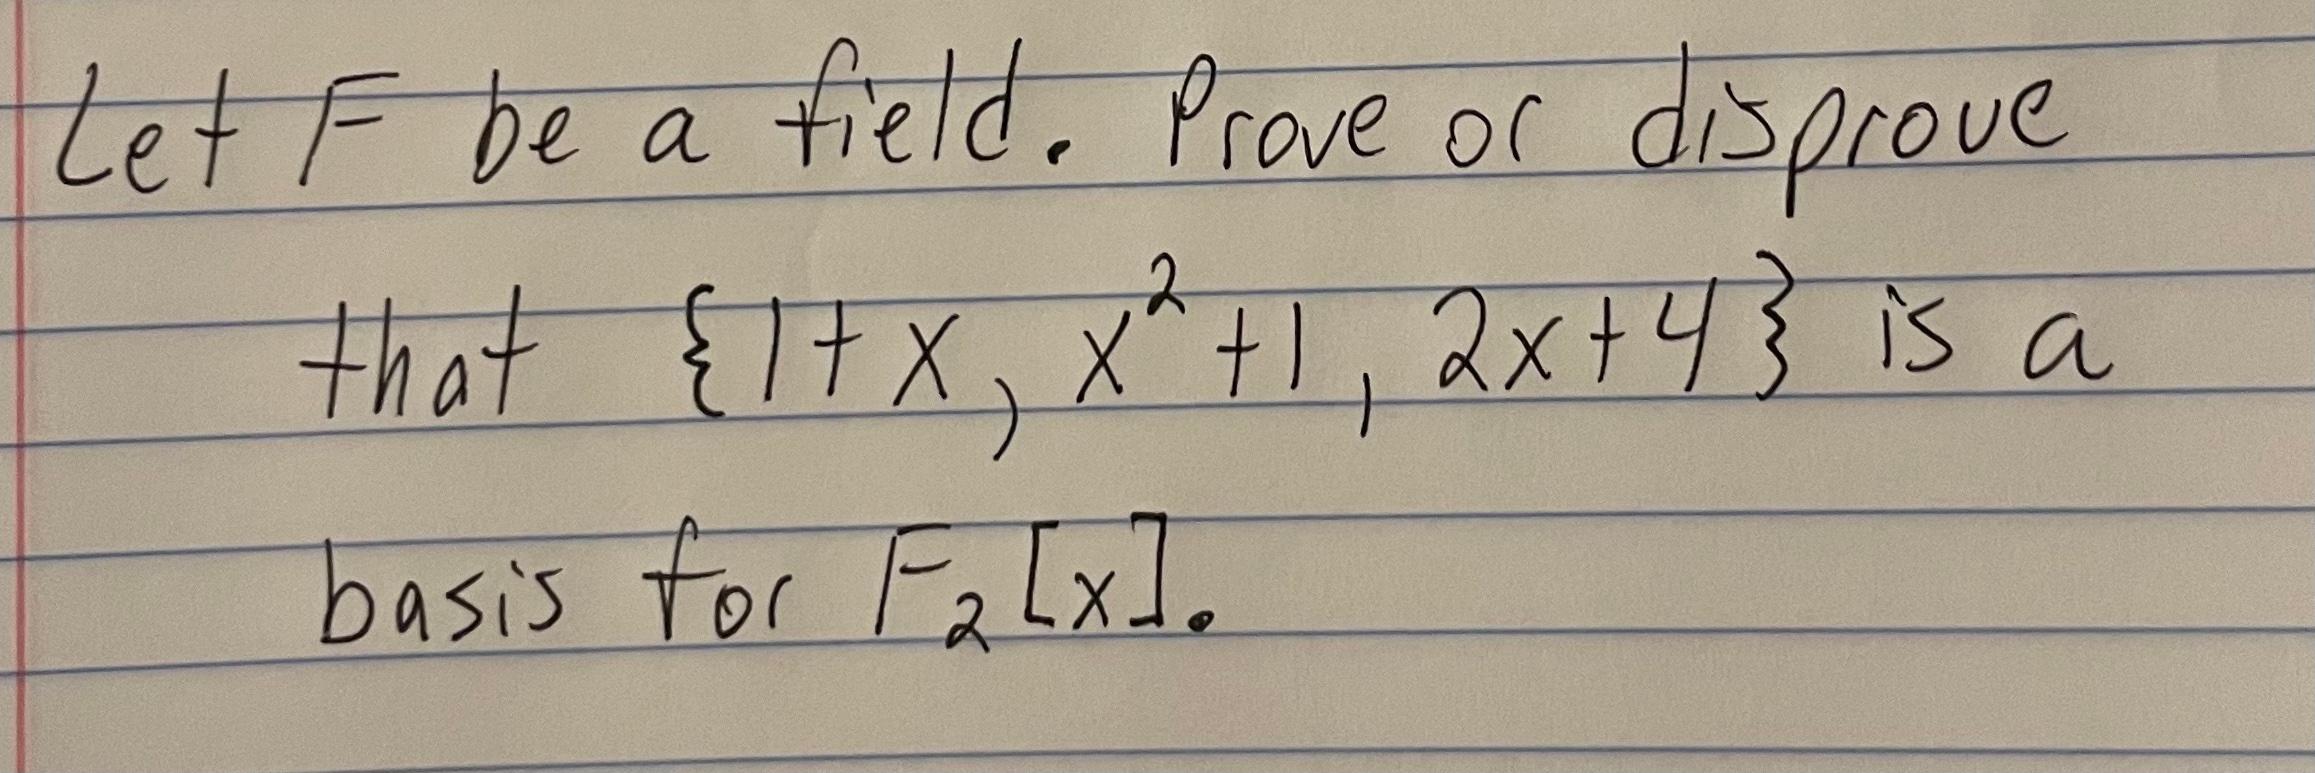 Let F be a field. Prove or disprove
that {1+x, x²+1, 2x+4} is a
basis for F₂[x].